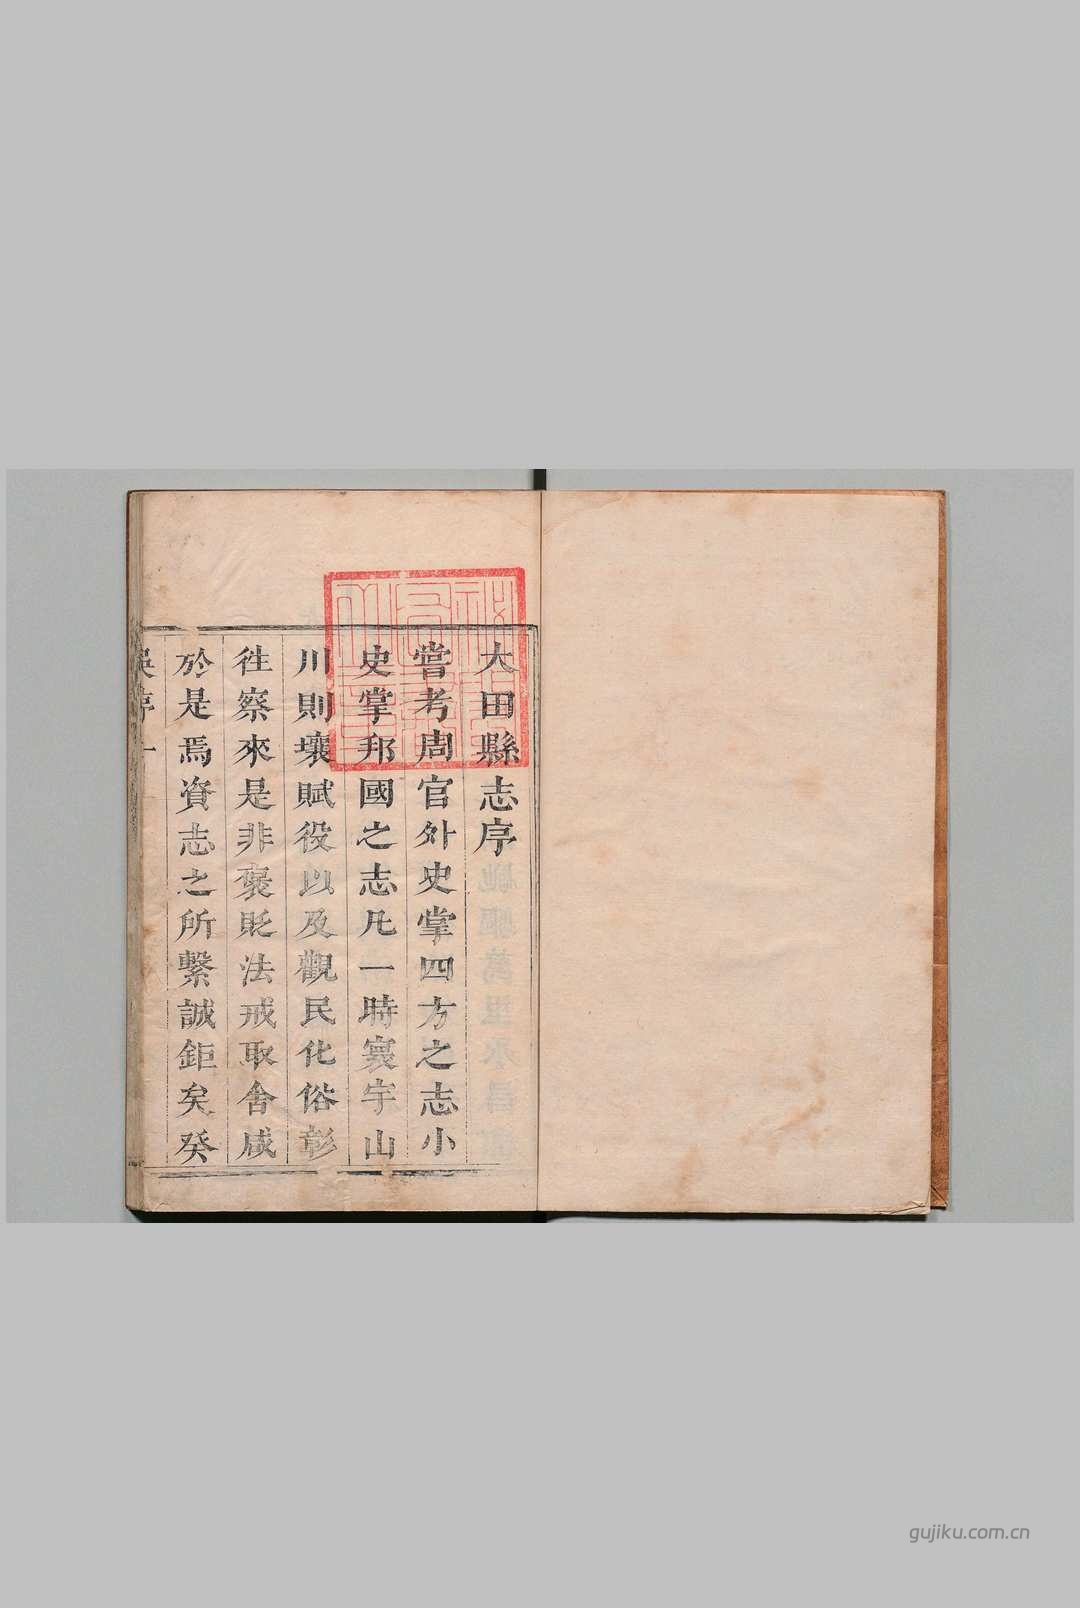 大田縣志序
嘗考周官外史掌四方之志小
史掌邦國之志凡一時寰宇山
川則壤賦役以及觀民化俗彰
徃察來是非褒貶法戒取舍咸
於是焉資志之所繫誠鉅矣癸
吳序 一
gujiku.com.cn